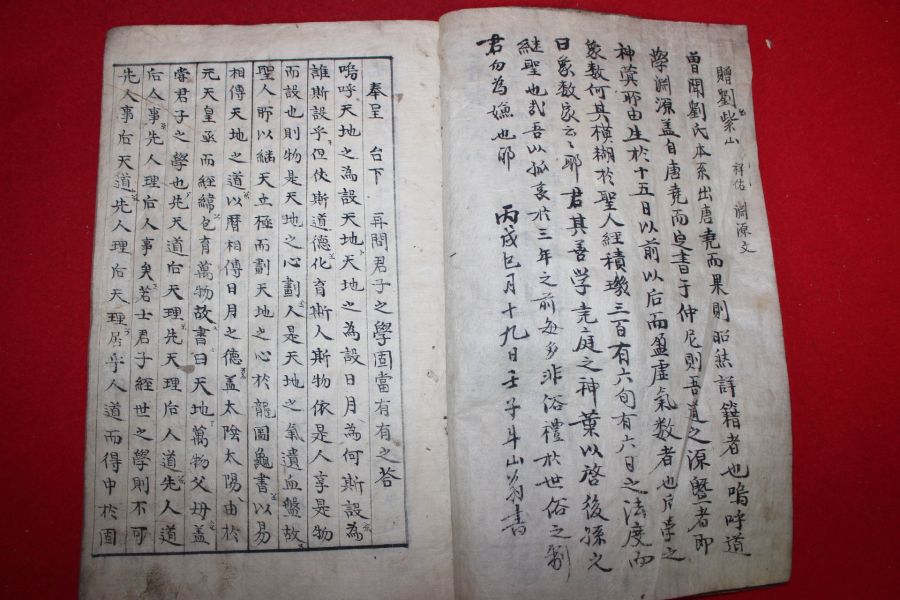 贈劉紫山 祥佑 淵源文
曾聞劉氏本系出唐堯而果則昭然詳籍者也嗚呼道
學淵源盖自唐堯而定書于仲尼則吾道之源者即
神蓂耶由生於十五日以前以后而盈虛氣数者也片學之
象数何其模糊於聖人經積璣三百有六旬有六日之法度而
日象数家云之耶 君其善學堯庭之神葉以啓後孫之
継聖也哉吾以孤哀於三年之前每多非俗禮於世俗之制
君勿為嫌也耶 丙戌巳月十九日壬子斗山翁書
奉呈 台下 再問君子之學固當有有之答
嗚呼天地之為設天地天地之為設日月為何斯設為
誰斯設乎但使斯道德化育斯人斯物依是人享是物
而設也則物是天地之心劃人是天地之氣遺血盤故
聖人所以繼天立極而劃天地之心於龍圖龜書以易
相傳天地之道以曆相傳日月之德盖太陰太陽由於
元天皇亟而經緯包育萬物故書曰天地萬物父母盖
嘗君子之學也先天道后天理先天理后人道先人道
后人事先人理后人事矣若士君子經世之學則不可
先人事后天道先人理后天理居乎人道而得中於